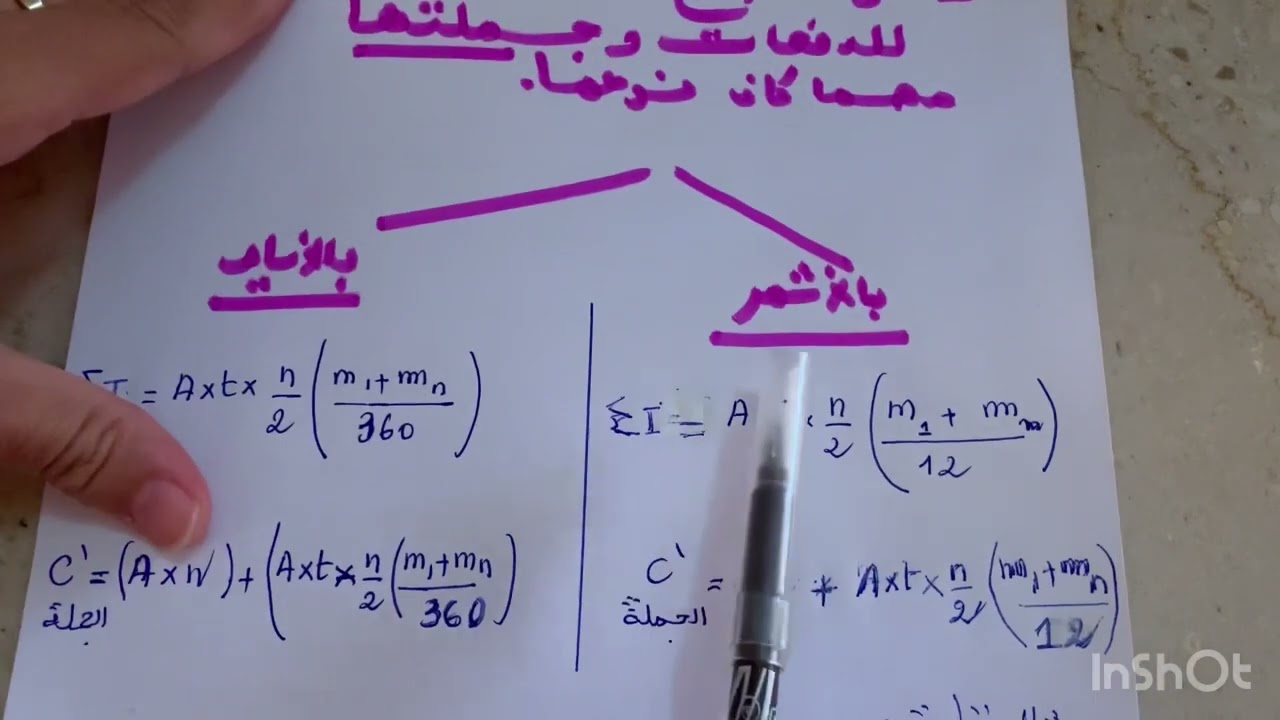 للدفعات وجملتها
مهما كان نوعها.
بالأيام
بالأشهر
ΣI = A×t× n/2 ( (m₁+mₙ)/360 )
ΣI = A × n/2 ( (m₁ + mₙ)/12 )
C' = (A×n) + (A×t× n/2 ( (m₁+mₙ)/360 )
الجملة
C' = + A×t× n/2 ( (m₁+mₙ)/12 )
الجملة
InShOt